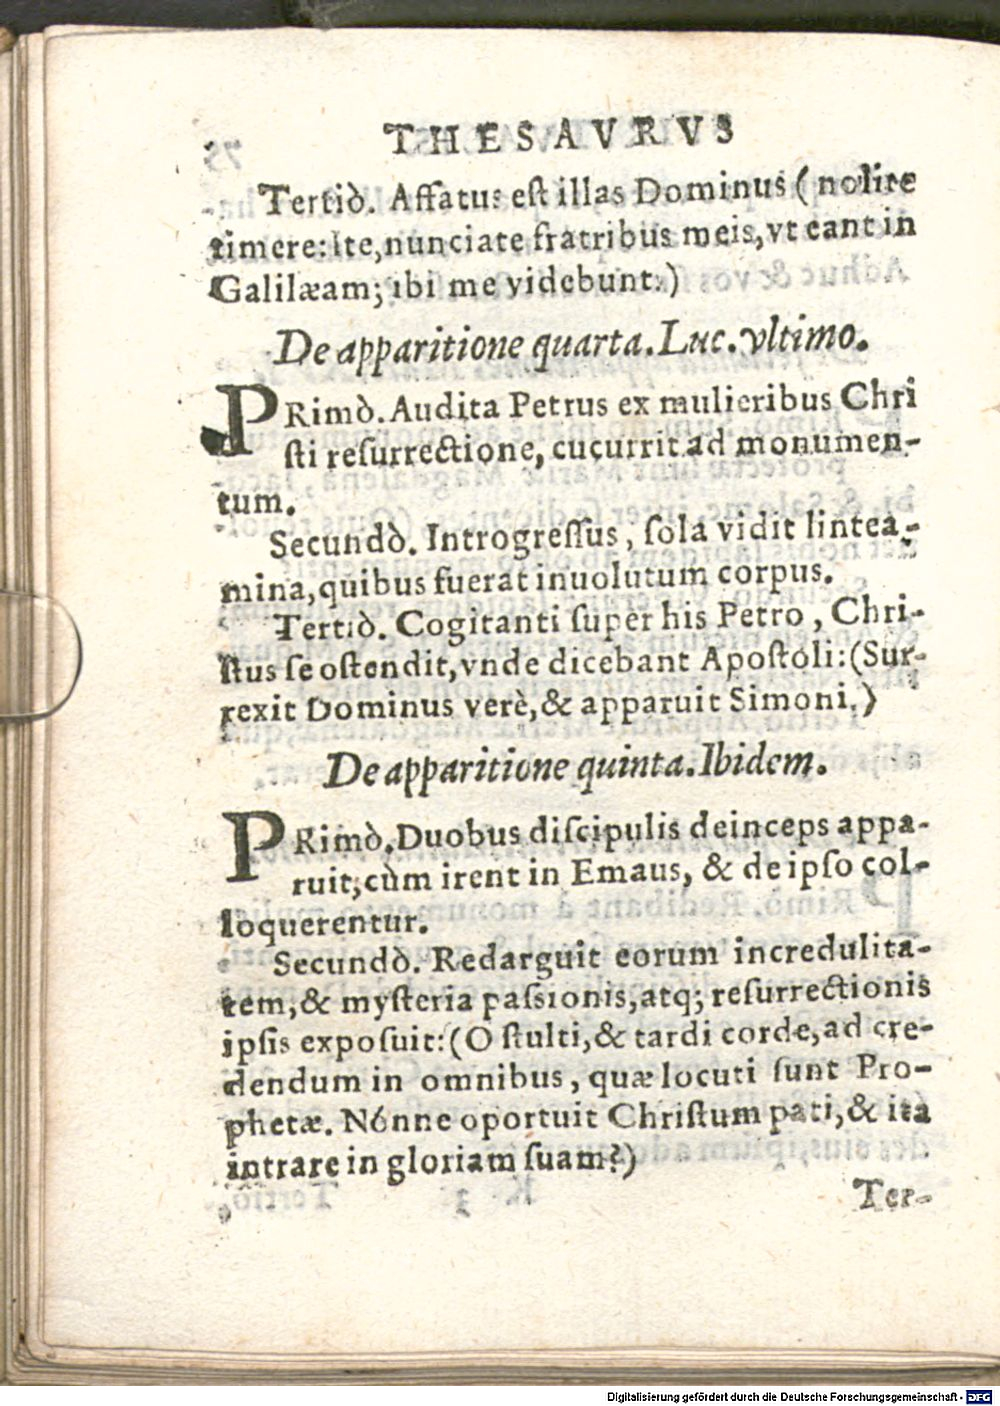 THESAVRVS
Tertiò. Affatus est illas Dominus (nolite
timere: Ite, nunciate fratribus meis, vt eant in
Galilæam; ibi me videbunt.)
De apparitione quarta. Luc. vltimo.
PRimò. Audita Petrus ex mulieribus Chri
sti resurrectione, cucurrit ad monumen-
tum.
Secundò. Introgressus, sola vidit lintea-
mina, quibus fuerat inuolutum corpus.
Tertiò. Cogitanti super his Petro, Chri-
stus se ostendit, vnde dicebant Apostoli: (Sur-
rexit Dominus verè, & apparuit Simoni.)
De apparitione quinta. Ibidem.
PRimò. Duobus discipulis deinceps appa-
ruit, cùm irent in Emaus, & de ipso col-
loquerentur.
Secundò. Redarguit eorum incredulita-
tem, & mysteria passionis, atq; resurrectionis
ipsis exposuit: (O stulti, & tardi corde, ad cre-
dendum in omnibus, quæ locuti sunt Pro-
phetæ. Nónne oportuit Christum pati, & ita
intrare in gloriam suam?)
Ter-
Digitalisierung gefördert durch die Deutsche Forschungsgemeinschaft - DFG